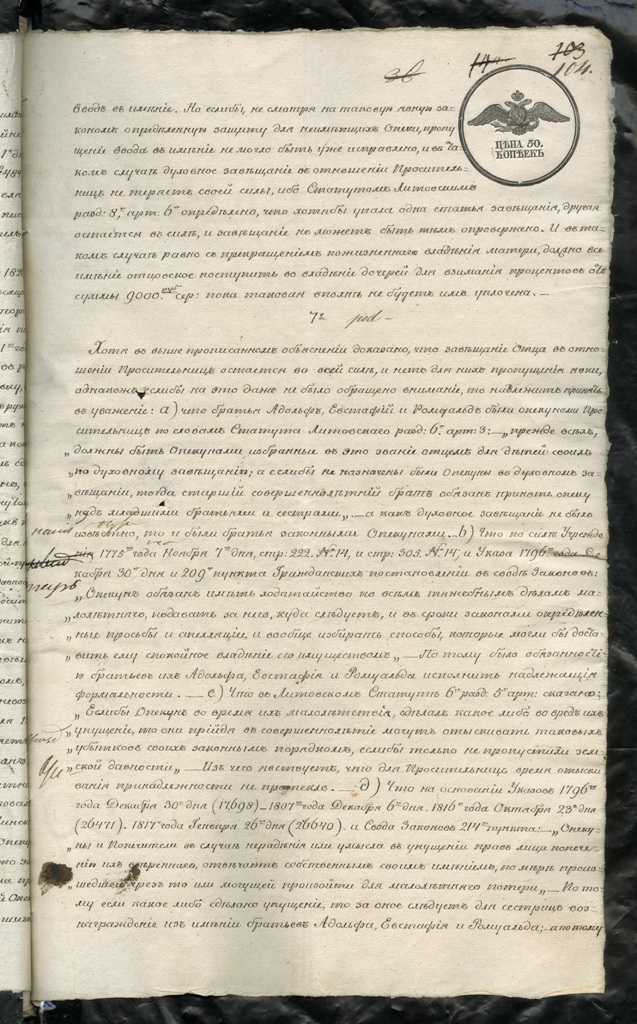 38 14 103
104.
ЦѢНА 50.
КОПѢЕКЪ
вводъ въ имѣніе. Но еслибы, не смотря на таковую явную за-
кономъ опредѣленную защиту для неимѣющихъ Опеки, пропу-
щеніе ввода въ имѣніе не могло быть уже исправлено, и въ та-
комъ случаѣ духовное завѣщаніе въ отношеніи Проситель-
ницъ не теряетъ своей силы, ибо Статутомъ Литовскимъ
разд: 8, арт: 6 опредѣлено, что хотябы упала одна статья завѣщанія, другая
остается въ силѣ, и завѣщаніе не можетъ быть тѣмъ опровержено. И въ та-
комъ случаѣ равно съ прекращеніемъ пожизненнаго владѣнія матери, должно все
имѣніе отцовское поступить во владѣніе дочерей для взиманія процентовъ отъ
суммы 9000. руб сер: пока таковая вполнѣ не будетъ имъ уплочена. —
7е
Хотя въ выше прописанномъ объясненіи доказано, что завѣщаніе Отца въ отно-
шеніи Просительницъ остается во всей силѣ, и нетъ для нихъ пропущенія явки,
однакожъ еслибы на это даже не было обращено вниманіе, то надлежитъ принять
въ уваженіе: а) что братья Адольфъ, Евстафій и Ромуальдъ были опекунами Про-
сительницъ по словамъ Статута Литовскаго разд: 6. арт: 3: — „прежде всѣхъ,
„должны быть Опекунами избранные въ это званіе отцемъ для дѣтей своихъ
„по духовному завѣщанію; а еслибы не назначены были Опекуны въ духовномъ за-
„вѣщаніи, тогда старшій совершеннолѣтній братъ обязанъ принять опеку
„надъ младшими братьями и сестрами„ — а какъ духовное завѣщаніе не было
извѣстно, то и были братья законными Опекунами. — б) Что по силѣ Учрежде-
нія 1775 года Ноября 7 дня, стр: 222. № 14, и стр: 305. № 14, и Указа 1796 года Де-
кабря 30 дня и 209 пункта Гражданскихъ постановленій въ сводѣ Законовъ:
„Опекунъ обязанъ имѣть ходатайство по всѣмъ тяжебнымъ дѣламъ ма-
„лолѣтняго, подавать за него, куда слѣдуетъ, и въ сроки законами опредѣлен-
„ные просьбы и апелляціи, и вообще избирать способы, которые могли бы доста-
„вить ему спокойное владѣніе его имуществомъ„ — По тому было обязанностію
братьевъ ихъ Адольфа, Евстафія и Ромуальда исполнить надлежащія
формальности. — с) Что въ Литовскомъ Статутѣ 6 разд: 5 арт: сказано:
„Еслибы Опекунъ во время ихъ малолѣтствія, сдѣлалъ какое либо во вредъ ихъ
„упущеніе, то они прійдя въ совершеннолѣтіе могутъ отыскивать таковыхъ
„убытковъ своихъ законнымъ порядкомъ, еслибы только не пропустили зем-
„ской давности„ — Изъ чего явствуетъ, что для Просительницъ время отыски-
ванія принадлежности не протекло. — д) Что на основаніи Указовъ 1796
года Декабря 30 дня (17698) — 1807 года Декабря 6 дня. 1816 года Октября 23 дня
(26471). 1817 года Генваря 26 дня (26640). и Свода Законовъ 214 пункта: — „Опеку-
„ны и Попечители въ случаѣ нерадѣнія или умысла въ упущеніи правъ лица попече-
„нію ихъ ввѣреннаго, отвѣчаютъ собственнымъ своимъ имѣніемъ, по мѣрѣ произ-
шедшей чрезъ то или могущей произойти для малолѣтняго потери„ — По то-
му если какое либо сдѣлано упущеніе, то за оное слѣдуетъ для сестрицъ воз-
награжденіе изъ имѣнія братьевъ Адольфа, Евстафія и Ромуальда; а потому